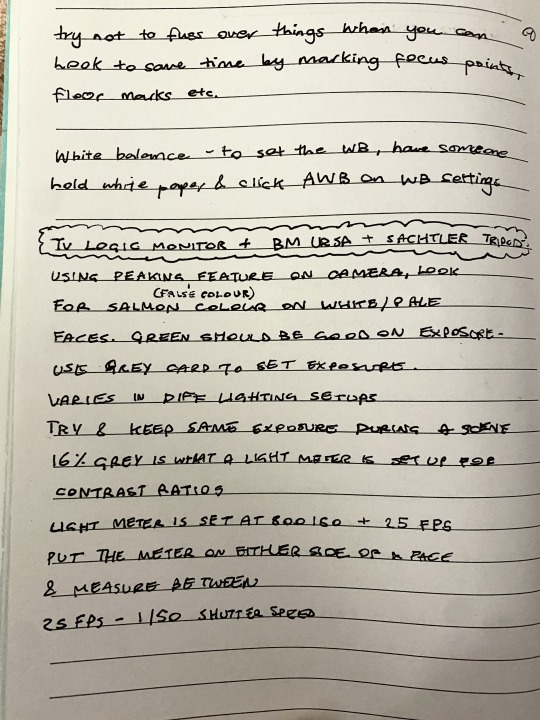 try not to fuss over things when you can 9
Look to save time by marking focus points,
floor marks etc.
White balance - to set the WB, have someone
hold white paper & click AWB on WB settings
TV LOGIC MONITOR + BM URSA + SACHTLER TRIPOD.
USING PEAKING FEATURE ON CAMERA, LOOK
(FALSE COLOUR)
FOR SALMON COLOUR ON WHITE/PALE
FACES. GREEN SHOULD BE GOOD ON EXPOSURE.
USE GREY CARD TO SET EXPOSURE.
VARIES IN DIFF LIGHTING SETUPS
TRY & KEEP SAME EXPOSURE DURING A SCENE
16% GREY IS WHAT A LIGHT METER IS SET UP FOR
CONTRAST RATIOS
LIGHT METER IS SET AT 800 ISO + 25 FPS
PUT THE METER ON EITHER SIDE OF A FACE
& MEASURE BETWEEN
25 FPS - 1/50 SHUTTER SPEED